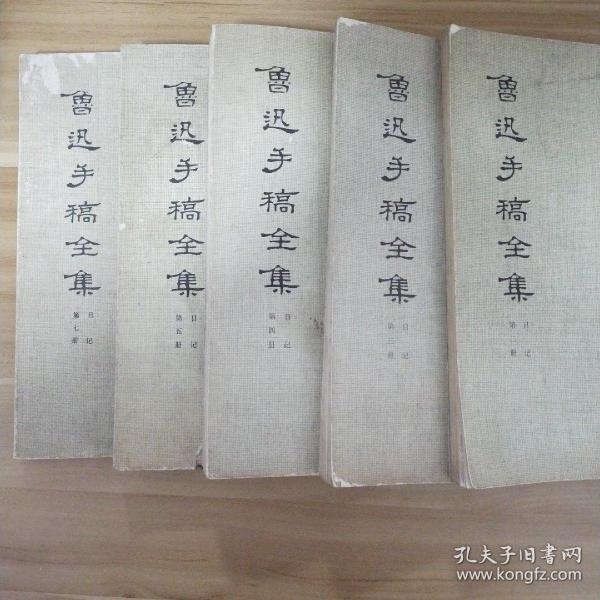 魯迅手稿全集
日记
第七册
魯迅手稿全集
日记
第五册
魯迅手稿全集
日记
第四册
魯迅手稿全集
日记
第三册
魯迅手稿全集
日记
孔夫子旧书网
www.kongfz.com